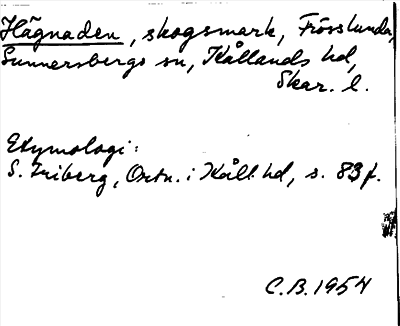 Hägnaden, skogsmark, Frösslunda,
Sunnersbergs sn, Kållands hd,
Skar. l.
Etymologi:
S. Friberg, Ortn. i Kåll. hd, s. 83 f.
C.B. 1954